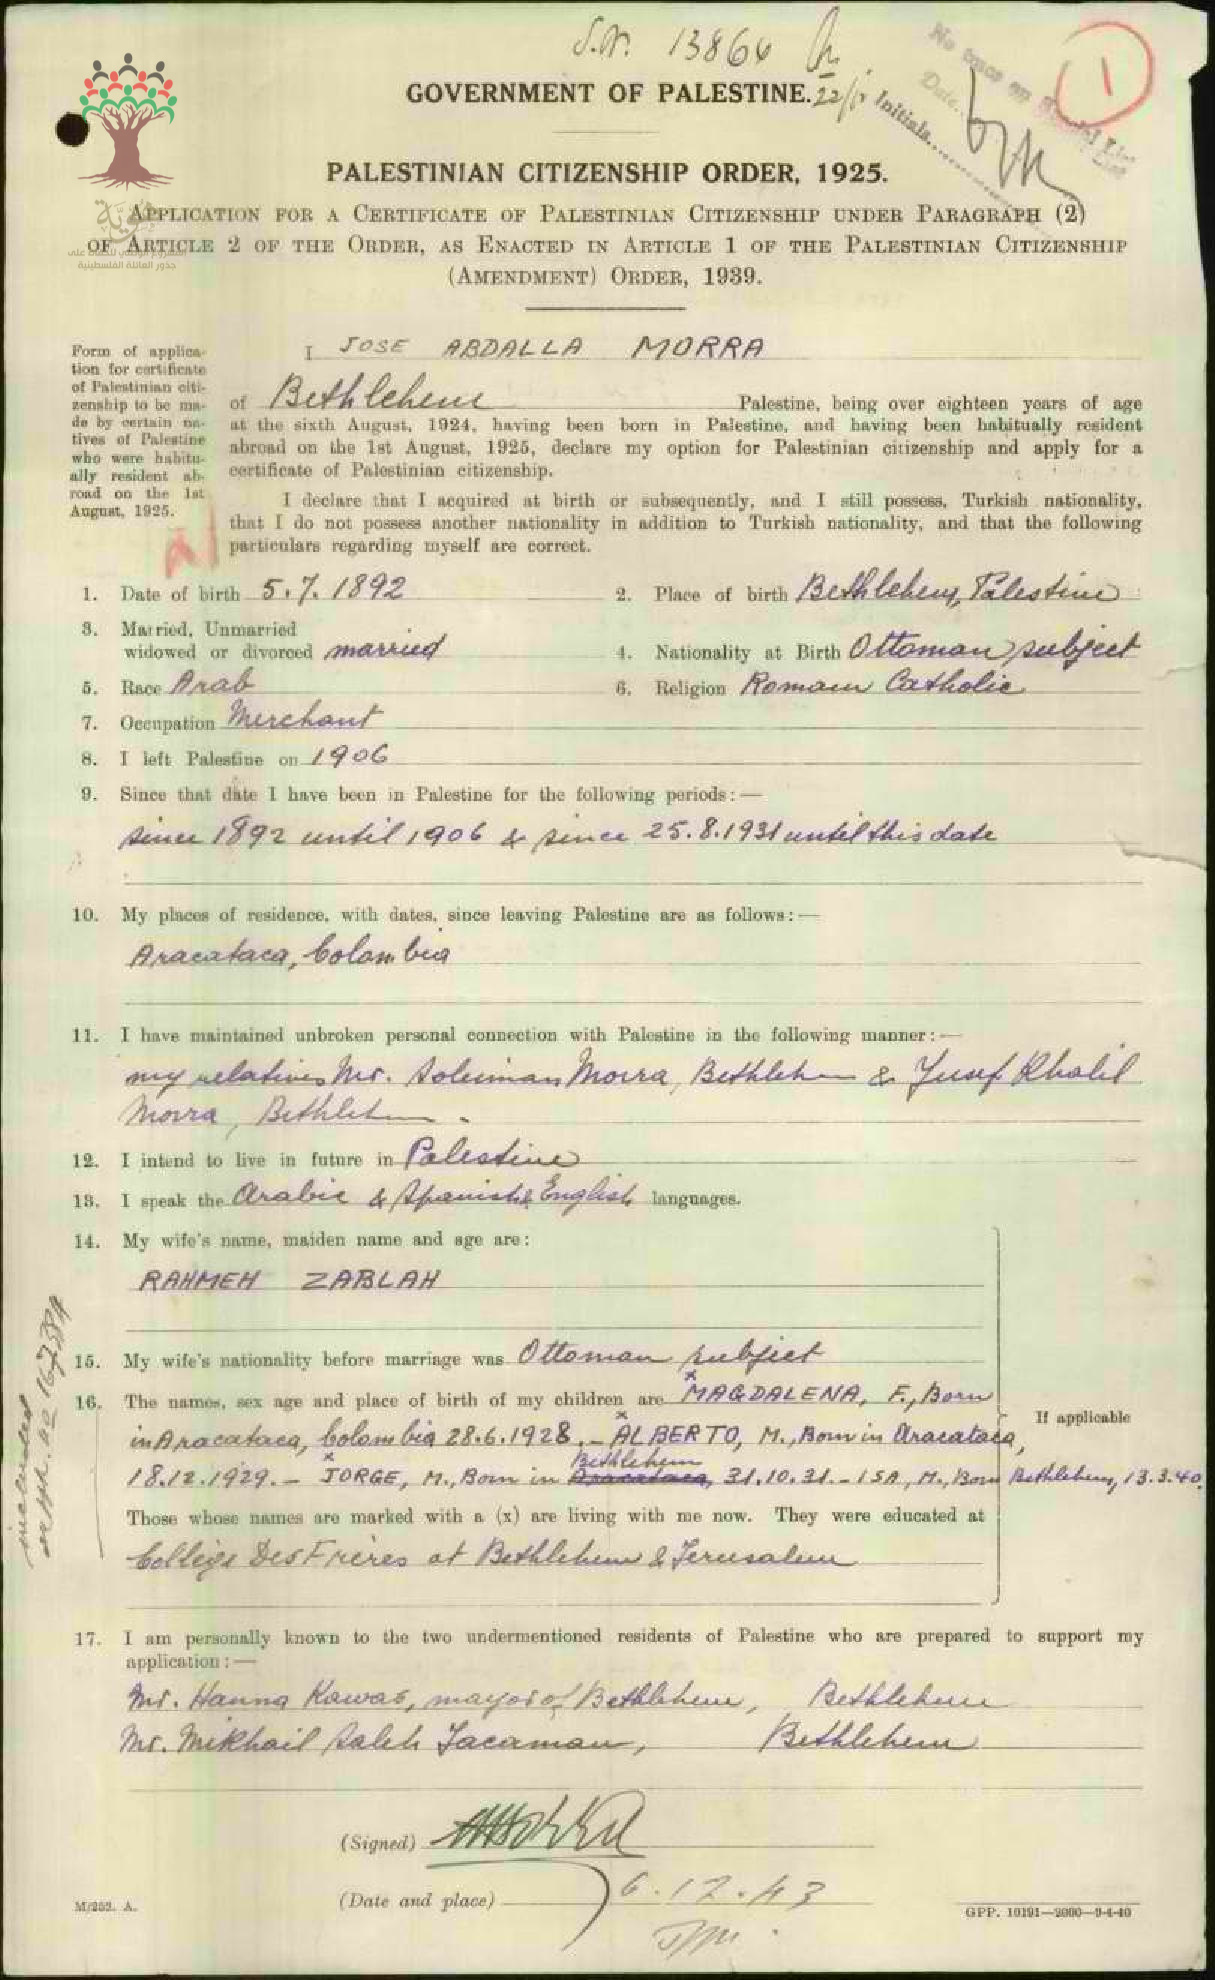 S.N. 13864
GOVERNMENT OF PALESTINE.
No trace on
Date
Initials
1
PALESTINIAN CITIZENSHIP ORDER, 1925.
APPLICATION FOR A CERTIFICATE OF PALESTINIAN CITIZENSHIP UNDER PARAGRAPH (2)
OF ARTICLE 2 OF THE ORDER, AS ENACTED IN ARTICLE 1 OF THE PALESTINIAN CITIZENSHIP
(AMENDMENT) ORDER, 1939.
هوية
المشروع الوطني للحفاظ على
جذور العائلة الفلسطينية
Form of applica-
tion for certificate
of Palestinian citi-
zenship to be ma-
de by certain na-
tives of Palestine
who were habitu-
ally resident ab-
road on the 1st
August, 1925.
I JOSE ABDALLA MORRA
of Bethlehem Palestine, being over eighteen years of age
at the sixth August, 1924, having been born in Palestine, and having been habitually resident
abroad on the 1st August, 1925, declare my option for Palestinian citizenship and apply for a
certificate of Palestinian citizenship.
I declare that I acquired at birth or subsequently, and I still possess, Turkish nationality,
that I do not possess another nationality in addition to Turkish nationality, and that the following
particulars regarding myself are correct.
1. Date of birth 5.7.1892 2. Place of birth Bethlehem, Palestine
3. Married, Unmarried
widowed or divorced married 4. Nationality at Birth Ottoman subject
5. Race Arab 6. Religion Roman Catholic
7. Occupation Merchant
8. I left Palestine on 1906
9. Since that date I have been in Palestine for the following periods:—
since 1892 until 1906 & since 25.8.1931 until this date
10. My places of residence, with dates, since leaving Palestine are as follows:—
Aracataca, Colombia
11. I have maintained unbroken personal connection with Palestine in the following manner:—
my relatives Mr. Soleiman Morra, Bethlehem & Yusef Khalil
Morra, Bethlehem.
12. I intend to live in future in Palestine
13. I speak the Arabic & Spanish & English languages.
14. My wife's name, maiden name and age are:
RAHMEH ZABLAH
15. My wife's nationality before marriage was Ottoman subject
16. The names, sex age and place of birth of my children are x MAGDALENA, F., Born
in Aracataca, Colombia 28.6.1928. – x ALBERTO, M., Born in Aracataca,
18.12.1929. – x JORGE, M., Born in Aracataca Bethlehem, 31.10.31. – ISA, M., Born Bethlehem, 13.3.40.
If applicable
Those whose names are marked with a (x) are living with me now. They were educated at
College Des Freres at Bethlehem & Jerusalem
included
17. I am personally known to the two undermentioned residents of Palestine who are prepared to support my
application:—
Mr. Hanna Kawas, mayor of Bethlehem, Bethlehem
Mr. Mikhail Saleh Jacaman, Bethlehem
(Signed)
(Date and place) 6.12.43
M/252. A.
GPP. 10191—2000—9-4-40